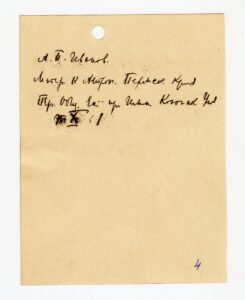 А. П. Иванов.
Матер. к Антроп. Пермск. Края
Тр. Общ. Ест. при Имп. Казанск. Ун
XI
4